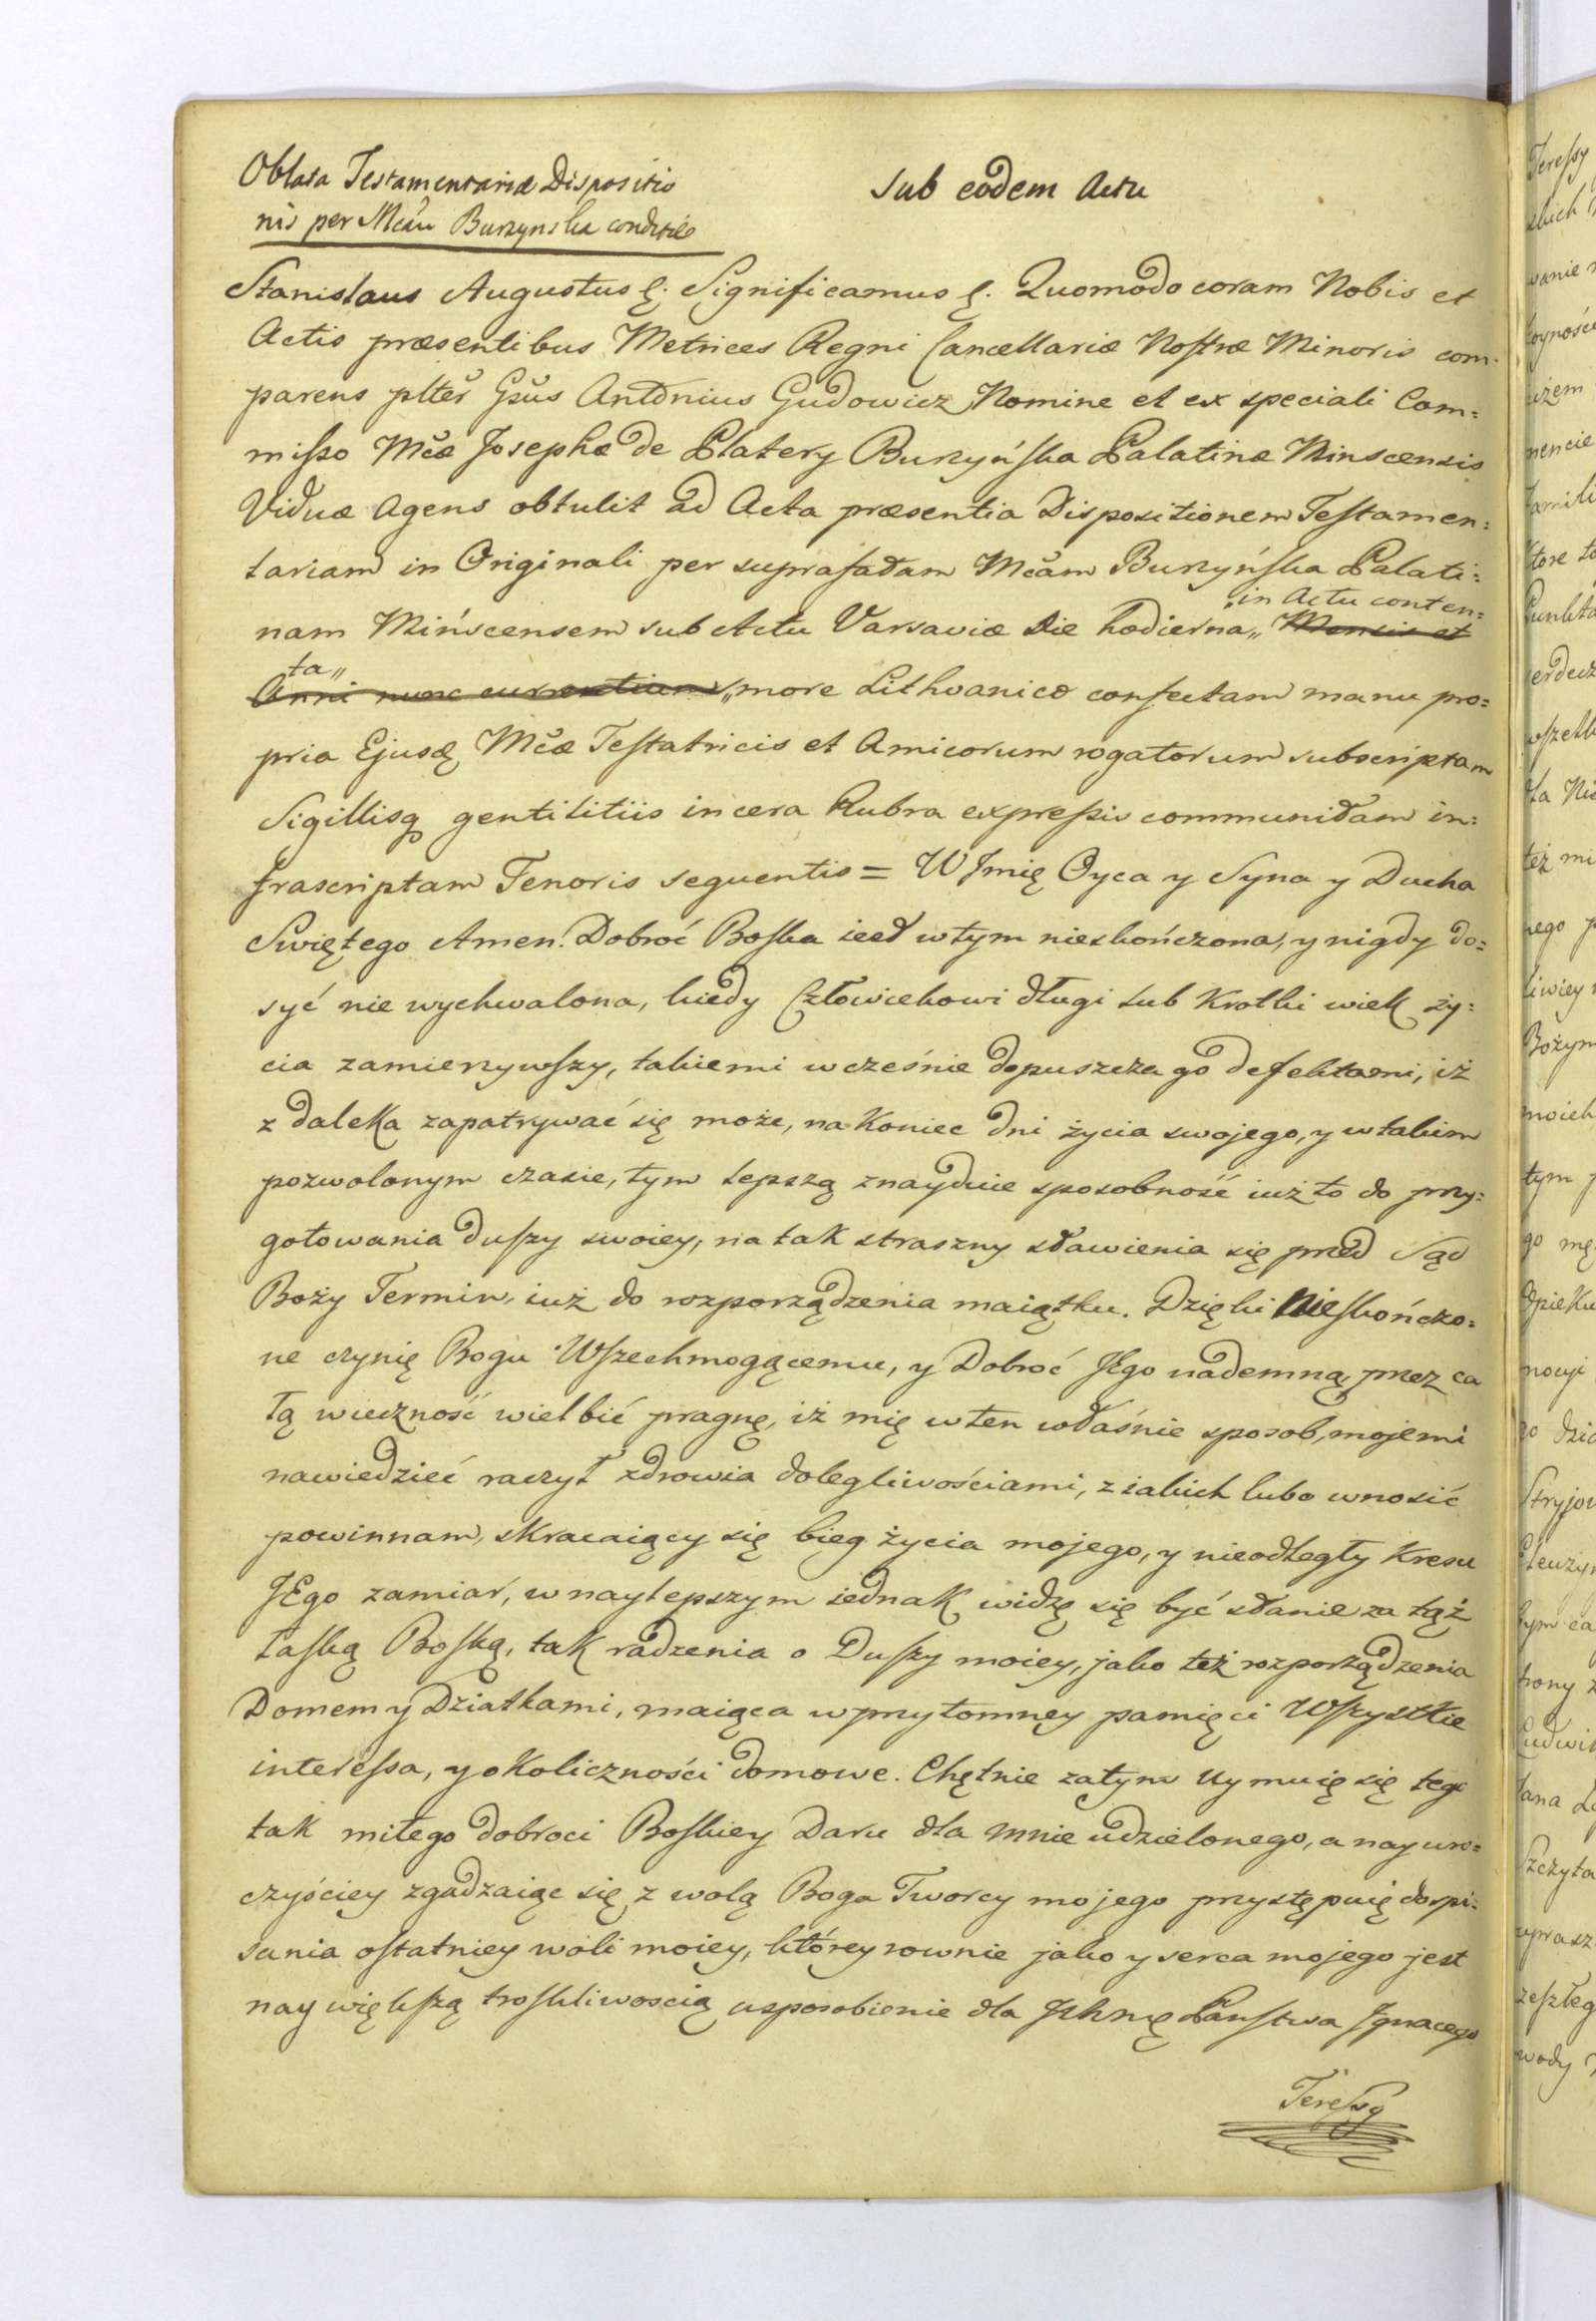 Oblata Testamentariæ Dispositio
nis per Mcãm Burzynska conditæ
Sub eodem Actu
Stanislaus Augustus &. Significamus &. Quomodo coram Nobis et
Actis præsentibus Metrices Regni Cancellariæ Nostræ Minoris com-
parens plter Gsus Antonius Gudowicz Nomine et ex speciali Com=
misso Mcæ Josephæ de Platery Burzyńska Palatinæ Minscensis
Viduæ Agens obtulit ad Acta præsentia Dispositionem Testamen=
tariam in Originali per suprafatam Mcam Burzyńska Palati=
nam Mińscensem sub Actu Varsaviæ die hodierna „in Actu conten= Mensis et
ta„ Anni nunc currentium „more Lithvanico confectam manu pro=
pria Ejusdę Mcæ Testatricis et Amicorum rogatorum subscriptam
Sigillisq gentilitiis in cera Rubra expressis communitam in=
frascriptam Tenoris sequentis = W Jmię Oyca y Syna y Ducha
Swiętego Amen. Dobroć Boska iest w tym nieskończona, y nigdy do=
syć nie wychwalona, kiedy Człowiekowi długi lub Krotki wiek ży=
cia zamierzywszy, takiemi wcześnie dopuszcza go defektami, iż
z daleka zapatrywać się może, na Koniec dni życia swojego, y w takim
pozwolonym czasie, tym lepszą znayduie sposobność iuż to do przy=
gotowania duszy swoiey, na tak straszny stawienia się przed Sąd
Boży Termin, iuż do rozporządzenia maiątku. Dzięki Nieskończo=
ne czynię Bogu Wszechmogącemu, y Dobroć JEgo nademną przez ca
łą wieczność wielbić pragnę, iż mię w ten właśnie sposob, mojemi
nawiedzieć raczył zdrowia dolegliwościami, z iakich lubo wnosić
powinnam, skracaiący się bieg życia mojego, y nieodległy Kresu
JEgo zamiar, w naylepszym iednak widzę się być stanie za tąż
łaską Boską, tak radzenia o Duszy moiey, jako też rozporządzenia
Domem y Dziatkami, maiąca w przytomney pamięci Wszystkie
interessa, y okoliczności domowe. Chętnie zatym uymuię się tego
tak miłego dobroci Boskiey Daru dla mnie udzielonego, a nayuro=
czyściey zgadzaiąc się z wolą Boga Tworcy mojego przystępuię do spi=
sania ostatniey woli moiey, którey rownie jako y serca mojego jest
naywiększą troskliwoscią usposobienie dla Jchmę Państwa Jgnacego
Teressy